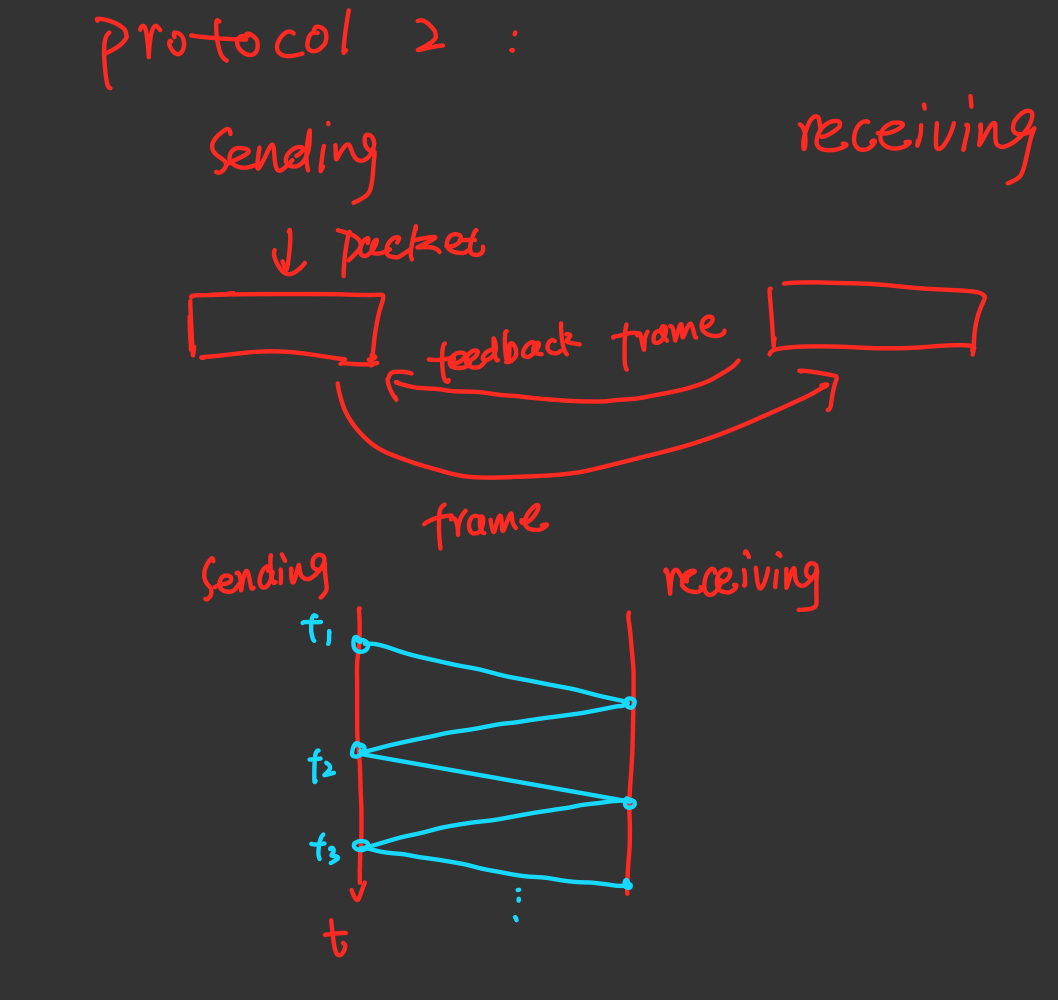 protocol 2 :
sending
receiving
packet
feedback frame
frame
sending
receiving
t1
t2
t3
⋮
t